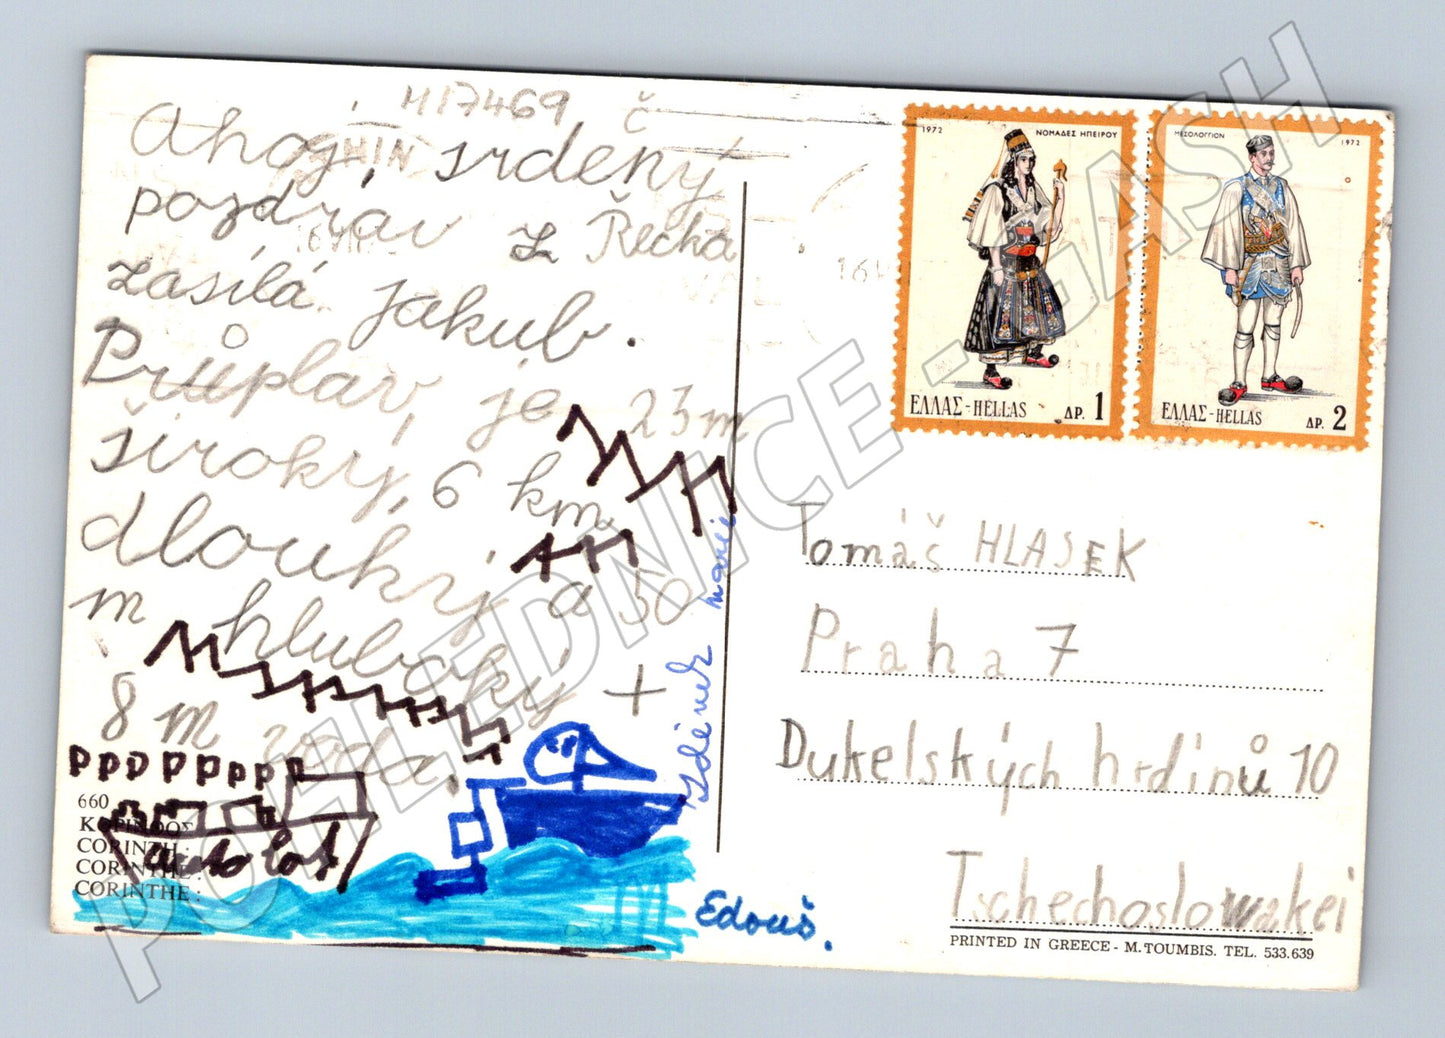 H17469
Ahoj, srdečný
pozdrav z Řecka
zasílá Jakub.
Průplav, je 23 m
široký, 6 km
dlouhý a 50
m hluboký +
8 m voda.
Zdeněk
Edouš.
autolot
660
ΚΟΡΙΝΘΟΣ
CORINTH:
CORINTHE:
CORINTHE:
1972 ΝΟΜΑΔΕΣ ΗΠΕΙΡΟΥ
ΕΛΛΑΣ-HELLAS ΔΡ. 1
ΜΕΣΟΛΟΓΓΙΟΝ 1972
ΕΛΛΑΣ-HELLAS ΔΡ. 2
Tomáš HLASEK
Praha 7
Dukelských hrdinů 10
Tschechoslowakei
PRINTED IN GREECE - M. TOUMBIS. TEL. 533.639
POHLEDNICE - GASH